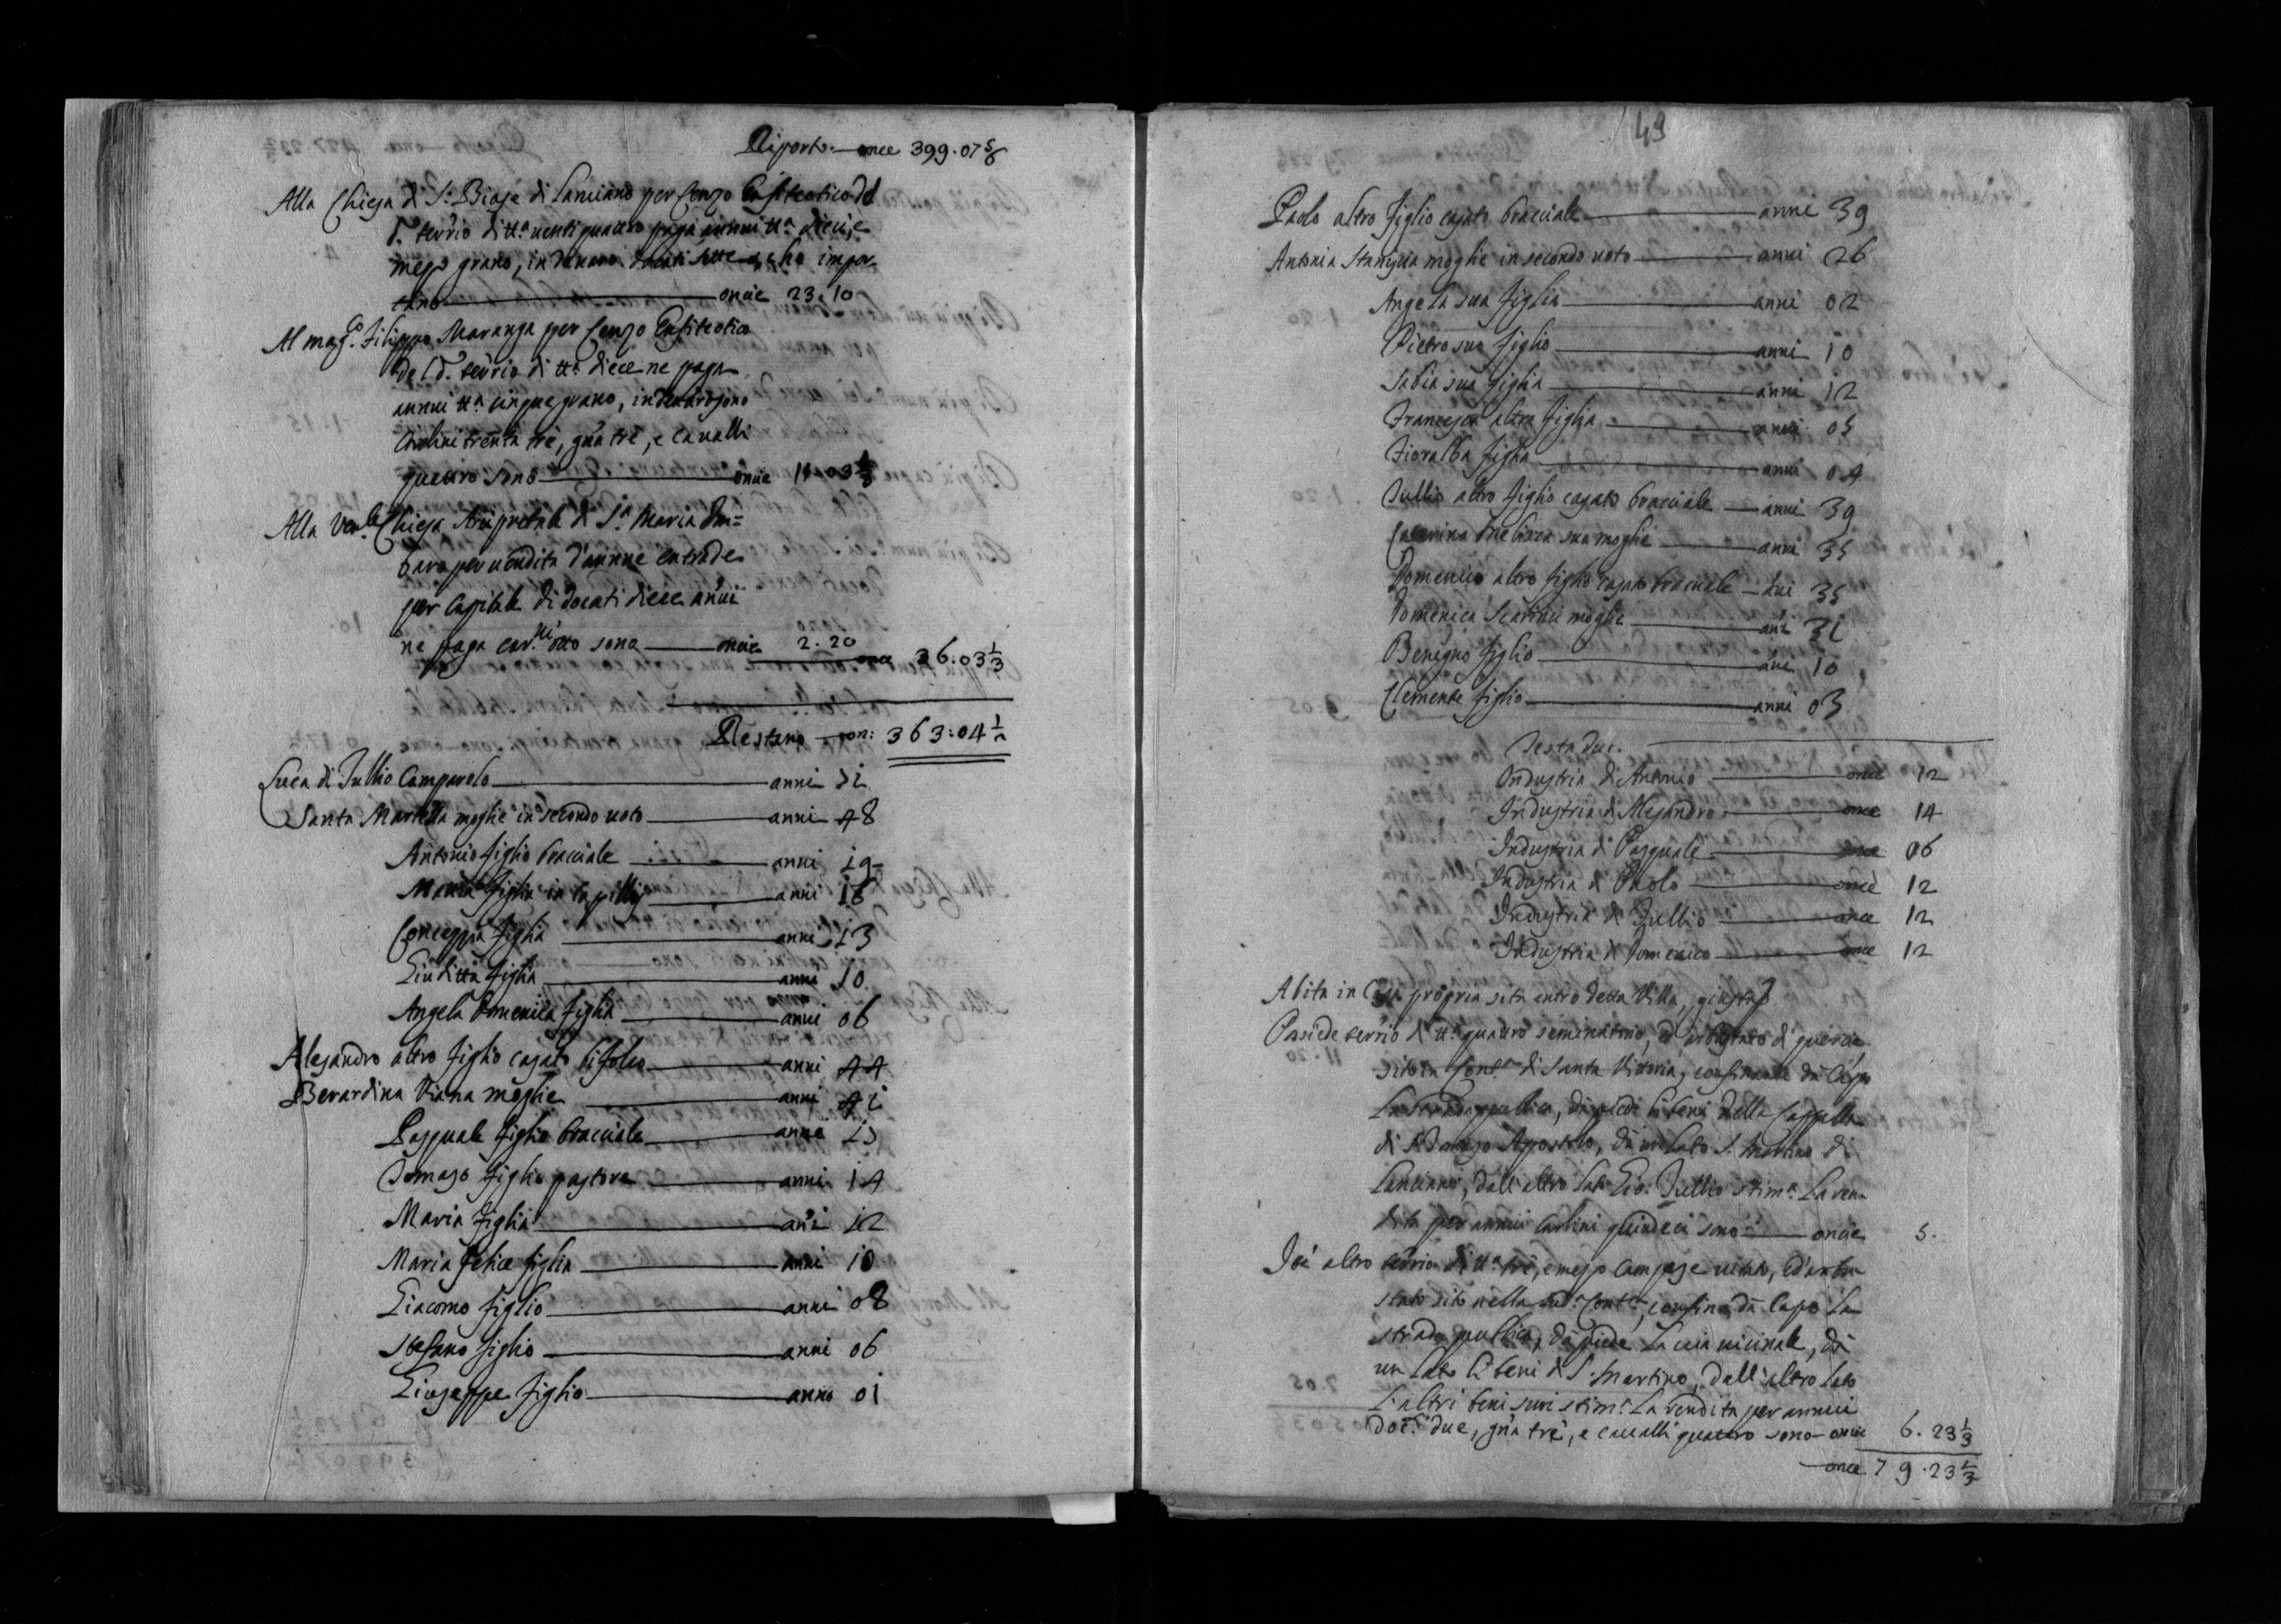 Riporto — once 399.07 5/6
Alla Chiesa di S. Biase di Lanciano per Cenzo Enfiteotico del
d.º terr.io di tt.ª ventiquattro paga annui tt.ª dieci, e
mezo grano, in denaro docati sette che impor
tano — oncie 23.10
Al mag.co Filippo Maranga per Cenzo Enfiteotico
del d.º terr.io di tt.ª diece ne paga
annui tt.ª cinque grano, in denaro sono
Carlini trenta tre, gna tre, e cavalli
quattro sono — oncie 11.03 1/3
Alla Ven.le Chiesa Arcipretale di S.ª Maria Im=
baro per vendita d'annue entrade
per Capitale di docati diece annui
ne paga car.ni otto sono — oncie 2.20
once 36.03 1/3
Restano — on: 363:04 1/2
Luca di Tullio Camparolo — anni 71
Santa Martella moglie in secondo voto — anni 48
Antonio figlio bracciale — anni 19
Maria figlia in capillis — anni 16
Concezzia figlia — anni 13
Giuditta figlia — anni 10
Angela Domenica figlia — anni 06
Alesandro altro figlio casato bifolco — anni 44
Berardina Viana moglie — anni 41
Pasquale figlio bracciale — anni 15
Tomaso figlio pastore — anni 14
Maria figlia — anni 12
Maria Felice figlia — anni 10
Giacomo figlio — anni 08
Stefano figlio — anni 06
Giuseppe figlio — anno 01
49
Paolo altro figlio casato bracciale — anni 39
Antonia Staniscia moglie in secondo voto — anni 26
Angela sua figlia — anni 02
Pietro suo figlio — anni 10
Sabia sua figlia — anni 12
Francesca altra figlia — anni 05
Fioralba figlia — anni 04
Tullio altro figlio casato bracciale — anni 39
Caterina sua moglie — anni 35
Domenico altro figlio casato bracciale — anni 35
Domenica Scarinci moglie — anni 31
Benegno figlio — anni 10
Clemente figlio — anni 03
Testa duc.
Industria di Antonio — once 12
Industria di Alesandro — once 14
Industria di Pasquale — once 06
Industria di Paolo — once 12
Industria di Tullio — once 12
Industria di Domenico — once 12
Abita in Casa propria sita entro detta Villa, giusta
Possiede terr.io di tt.ª quattro seminatorio, ed arbustato di querce
sito in Cont.ª di Santa Vittoria, confinante da Capo
La strada pubblica, da piedi li beni della Cappella
di S. Tomaso Apostolo, da un lato S. Martino di
Lanciano, dall'altro lato Gio: Tullio stim.ª La ren
dita per annui Carlini quindeci sono — oncie 5.
Item altro terr.io di tt.ª tre, e mezo Campese vitato, ed arbu
stato sito nella sud.ª Cont.ª, confina da Capo la
strada pubblica, da piede La via vicinale, da
un lato li beni di S. Martino, dall'altro lato
L'altri beni suoi stim.ª La rendita per annui
doc.ti due, gna tre, e cavalli quattro sono oncie 6.23 1/3
once 79.23 1/3